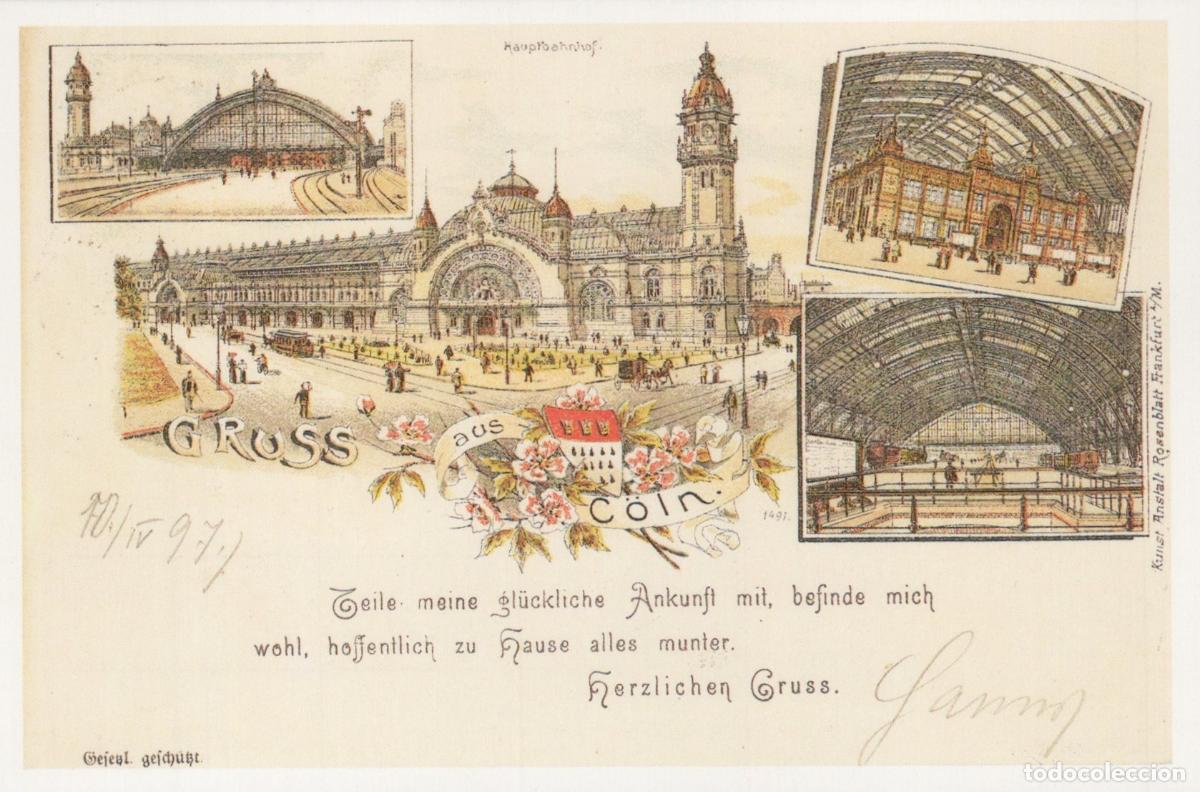 Hauptbahnhof.
GRUSS
aus
Cöln.
1491.
Kunst Anstalt Rosenblatt Frankfurt a/M.
/IV 97.
Teile meine glückliche Ankunft mit, befinde mich
wohl, hoffentlich zu Hause alles munter.
Herzlichen Gruss.
Gesetzl. geschützt.
todocoleccion